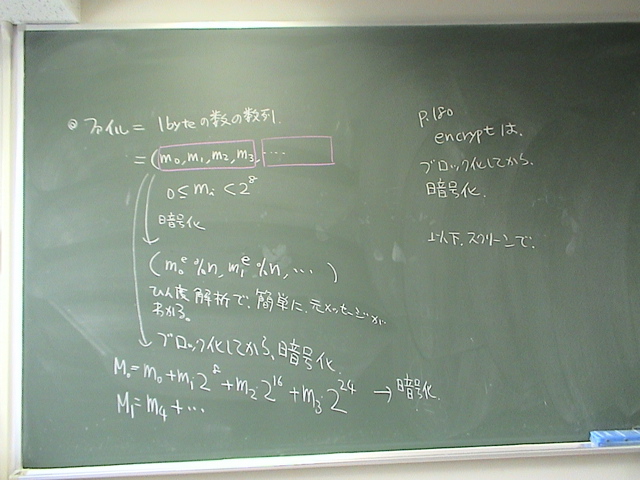 ◎ ファイル = 1byteの数の数列.
= (m₀, m₁, m₂, m₃, ...
0 ≤ mᵢ < 2⁸
暗号化
(m₀ᵉ %n, m₁ᵉ %n, ... )
ひん度解析で、簡単に、元メッセージが
わかる。
ブロック化してから、暗号化.
M₀ = m₀ + m₁2⁸ + m₂2¹⁶ + m₃2²⁴ → 暗号化.
M₁ = m₄ + ...
P.180
encryptは、
ブロック化してから、
暗号化.
以下、スクリーンで.